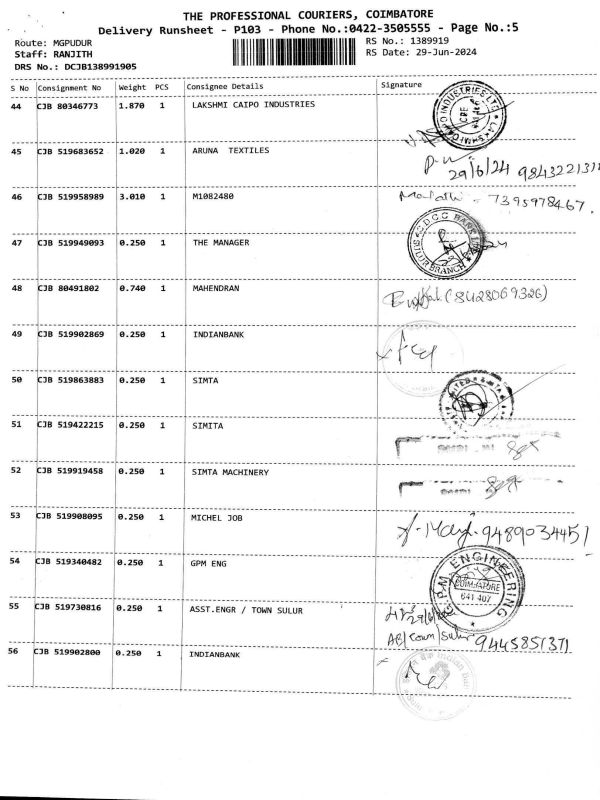 THE PROFESSIONAL COURIERS, COIMBATORE
Delivery Runsheet - P103 - Phone No.:0422-3505555 - Page No.:5
Route: MGPUDUR
Staff: RANJITH
DRS No.: DCJB138991905
RS No.: 1389919
RS Date: 29-Jun-2024
S No Consignment No Weight PCS Consignee Details Signature
44 CJB 80346773 1.870 1 LAKSHMI CAIPO INDUSTRIES
LAKSHMI CAIPO INDUSTRIES LTD
45 CJB 519683652 1.020 1 ARUNA TEXTILES
29/6/24 984322131
46 CJB 519958989 3.010 1 M1082480
Malathi - 7395978467.
47 CJB 519949093 0.250 1 THE MANAGER
C.D.C.C BANK
BRANCH
48 CJB 80491802 0.740 1 MAHENDRAN
(8428069326)
49 CJB 519902869 0.250 1 INDIANBANK
50 CJB 519863883 0.250 1 SIMTA
51 CJB 519422215 0.250 1 SIMITA
52 CJB 519919458 0.250 1 SIMTA MACHINERY
53 CJB 519908095 0.250 1 MICHEL JOB
9489034451
54 CJB 519340482 0.250 1 GPM ENG
G.P.M. ENGINEERING
COIMBATORE
641 407
55 CJB 519730816 0.250 1 ASST.ENGR / TOWN SULUR
AE/Town/Sulur 9445851371
56 CJB 519902800 0.250 1 INDIANBANK